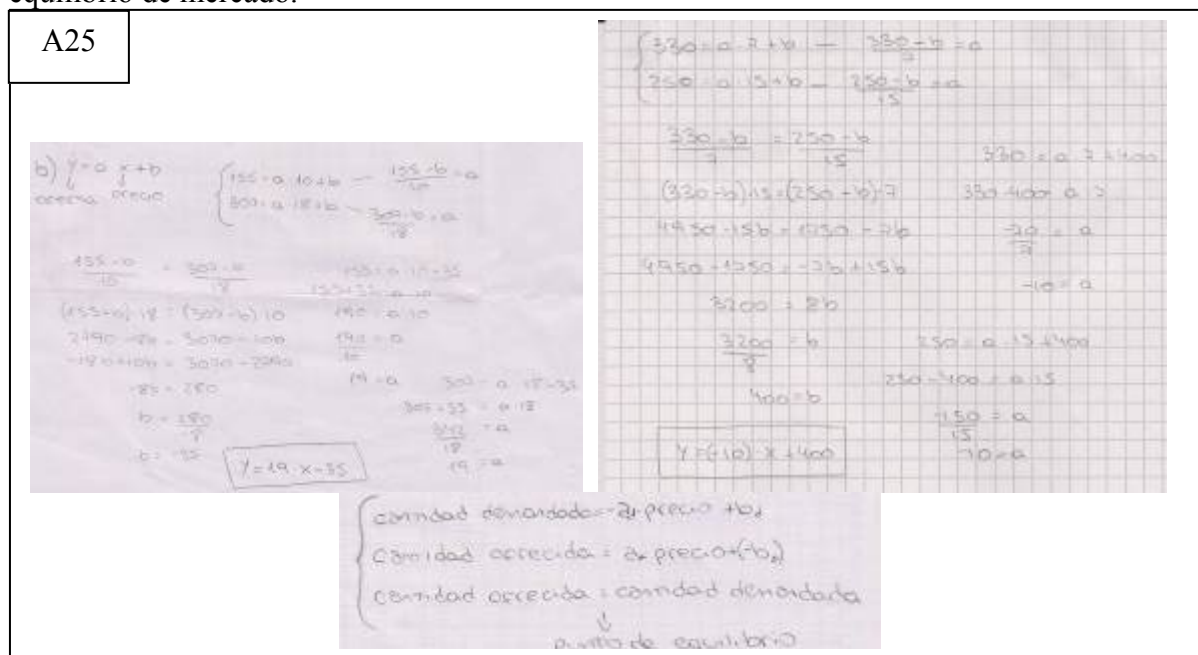 equilibrio de mercado.
A25
b) y = a x + b
oferta precio
155 = a · 10 + b — 155 - b / 10 = a
307 = a · 18 + b — 307 - b / 18 = a
155 - b / 10 = 307 - b / 18
(155 - b) · 18 = (307 - b) · 10
2790 - 18b = 3070 - 10b
-18b + 10b = 3070 - 2790
-8b = 280
b = 280 / -8
b = -35
155 = a · 10 - 35
155 + 35 = a · 10
190 = a · 10
190 / 10 = a
19 = a
307 = a · 18 - 35
307 + 35 = a · 18
342 / 18 = a
19 = a
y = 19 · x - 35
330 = a · 7 + b — 330 - b / 7 = a
250 = a · 15 + b — 250 - b / 15 = a
330 - b / 7 = 250 - b / 15
(330 - b) · 15 = (250 - b) · 7
4950 - 15b = 1750 - 7b
4950 - 1750 = -7b + 15b
3200 = 8b
3200 / 8 = b
400 = b
330 = a · 7 + 400
330 - 400 = a · 7
-70 / 7 = a
-10 = a
250 = a · 15 + 400
250 - 400 = a · 15
-150 / 15 = a
-10 = a
y = (-10) · x + 400
cantidad demandada = -a · precio + b
cantidad ofrecida = a · precio + (-b)
cantidad ofrecida = cantidad demandada
punto de equilibrio